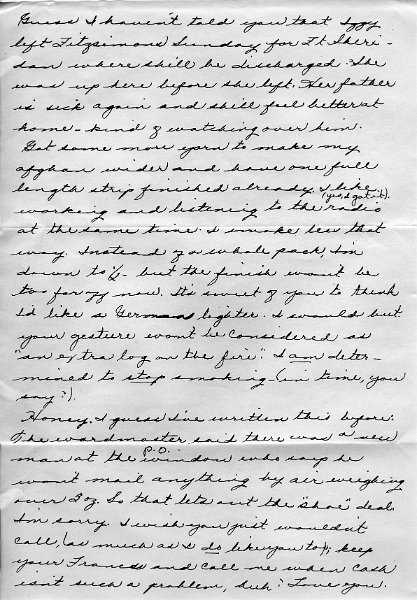 Guess I haven't told you that Izzy
left Fitzsimons Sunday for Ft Sheri-
dan where she'll be discharged. She
was up here before she left. Her father
is sick again and she'll feel better at
home - kind of watching over him.
Got some more yarn to make my
afghan wider and have one full
length strip finished already. I like
(yes, I got it).
working and listening to the radio
at the same time. I smoke less that
way. Instead of a whole pack, I'm
down to ½ - but the finish won't be
too far off now. It's sweet of you to think
I'd like a German lighter. I would but
your gesture won't be considered as
"an extra log on the fire". I am deter-
mined to stop smoking - (in time, you
say?).
Honey, I guess I've written this before.
The wardmaster said there was a new
P.O.
man at the window who says he
won't mail anything by air weighing
over 2 oz. So that lets out the "shoe" deal.
I'm sorry. I wish you just wouldn't
call, (as much as I do like you to); keep
your Francs and call me when cash
isn't such a problem, huh? Love you.